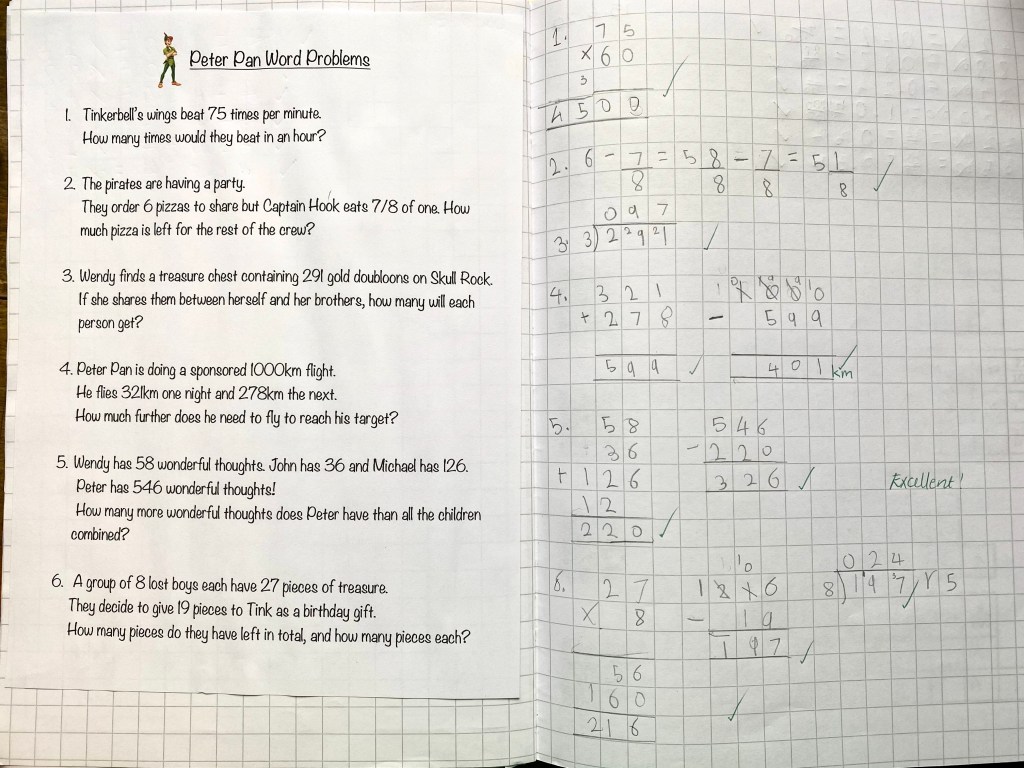 Peter Pan Word Problems
1. Tinkerbell's wings beat 75 times per minute.
How many times would they beat in an hour?
2. The pirates are having a party.
They order 6 pizzas to share but Captain Hook eats 7/8 of one. How
much pizza is left for the rest of the crew?
3. Wendy finds a treasure chest containing 291 gold doubloons on Skull Rock.
If she shares them between herself and her brothers, how many will each
person get?
4. Peter Pan is doing a sponsored 1000km flight.
He flies 321km one night and 278km the next.
How much further does he need to fly to reach his target?
5. Wendy has 58 wonderful thoughts. John has 36 and Michael has 126.
Peter has 546 wonderful thoughts!
How many more wonderful thoughts does Peter have than all the children
combined?
6. A group of 8 lost boys each have 27 pieces of treasure.
They decide to give 19 pieces to Tink as a birthday gift.
How many pieces do they have left in total, and how many pieces each?
1. 75
×60
3
4500 ✓
2. 6 - 7/8 = 5 8/8 - 7/8 = 5 1/8 ✓
097
3. 3)2 29 21 ✓
4. 321
+278
599 ✓
- 599
401 km ✓
5. 58
36
+126
12
220 ✓
546
-220
326 ✓
Excellent!
6. 27
× 8
56
160
216
- 19
197 ✓
024
8)197 r5
✓